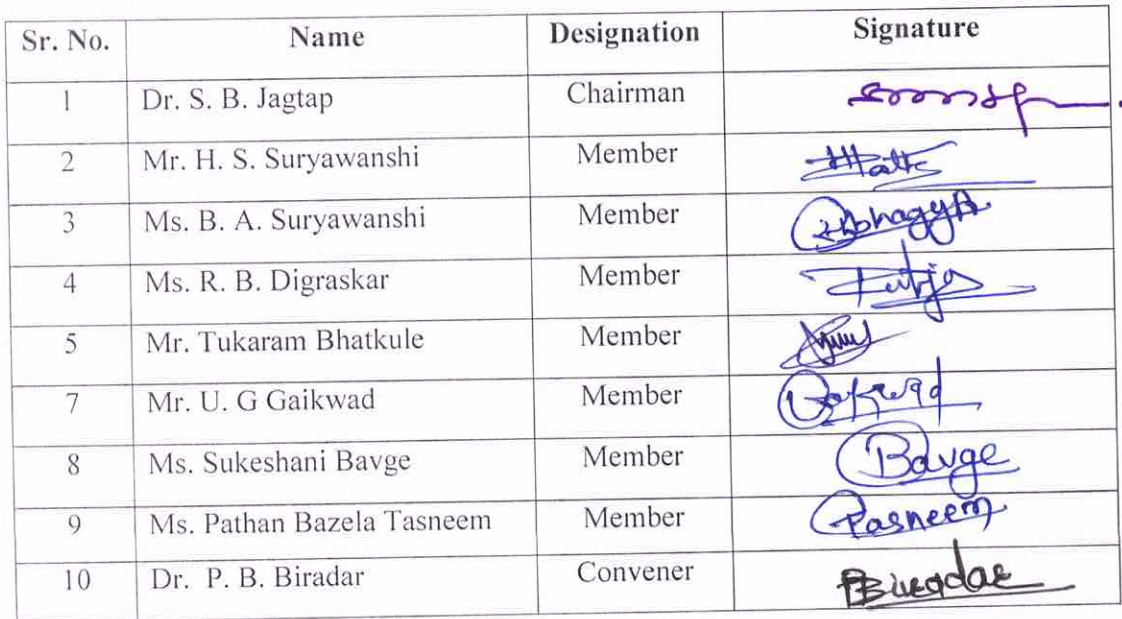 Sr. No. Name Designation Signature
1 Dr. S. B. Jagtap Chairman
2 Mr. H. S. Suryawanshi Member
3 Ms. B. A. Suryawanshi Member
4 Ms. R. B. Digraskar Member
5 Mr. Tukaram Bhatkule Member
7 Mr. U. G Gaikwad Member
8 Ms. Sukeshani Bavge Member Bavge
9 Ms. Pathan Bazela Tasneem Member Tasneem
10 Dr. P. B. Biradar Convener PBBiradar